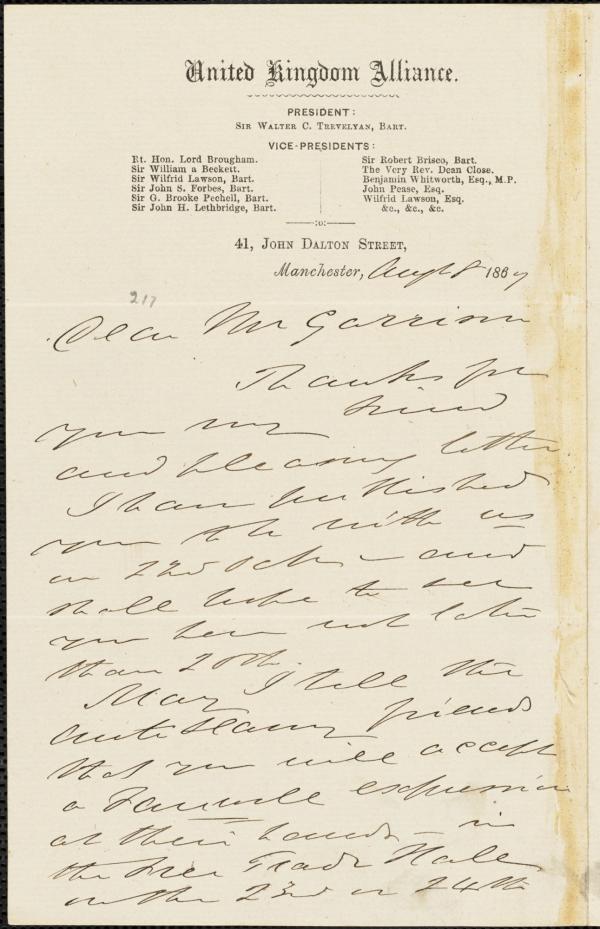 United Kingdom Alliance.
PRESIDENT:
SIR WALTER C. TREVELYAN, BART.
VICE-PRESIDENTS:
Rt. Hon. Lord Brougham.
Sir William a Beckett.
Sir Wilfrid Lawson, Bart.
Sir John S. Forbes, Bart.
Sir G. Brooke Pechell, Bart.
Sir John H. Lethbridge, Bart.
Sir Robert Brisco, Bart.
The Very Rev. Dean Close.
Benjamin Whitworth, Esq., M.P.
John Pease, Esq.
Wilfrid Lawson, Esq.
&c., &c., &c.
:o:
41, JOHN DALTON STREET,
Manchester, Augt 8 1867
217
Dear Mr Garrison
Thanks for
your kind
and pleasing letter.
I have
you with us
on 22nd Octr - and
shall like to see
you here not later
than 20th.
May I tell the
Anti Slavery friends
that you will accept
a Farewell expression
at their hands - in
the Free Trade Hall
on the 23rd or 24th